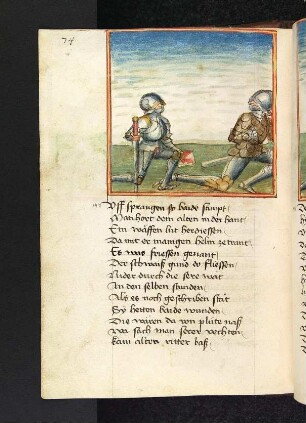 74
Vff sprangen sy baide sampt
Man hort dem alten in der hant
Ein waffen lut herdiessen
Da mit er mangen helm zetrant
Es was friessen genant
Der schwaiß gund dr fliessen
Nider durch die sere wat
An den selben stunden
Als es noch geschriben stat
Sy hetten baide wunden
Die waren da von plute naß
Wa sach man serer vechten
kain alten ritter baß